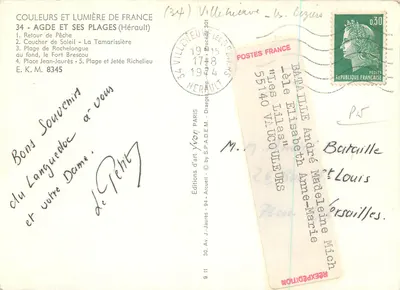 COULEURS ET LUMIÈRE DE FRANCE
34 - AGDE ET SES PLAGES (Hérault)
1. Retour de Pêche
2. Coucher de Soleil - La Tamarissière
3. Plage de Rochelongue
au fond, le Fort Brescou
4. Place Jean-Jaurès - 5. Plage et Jetée Richelieu
E. K. M. 8345
Bons Souvenirs
du Languedoc à vous
et votre Dame.
Editions d'art Yvon PARIS
(34) Villeneuve
17-8
1974
HERAULT
0,30
REPUBLIQUE FRANCAISE
P25
POSTES FRANCE
BATAILLE André Madeleine Mich
-èle Elisabeth Anne-Marie
"Les Lilas"
55140 VAUCOULEURS
RÉEXPÉDITION
M.
Bataille
St Louis
Versailles.